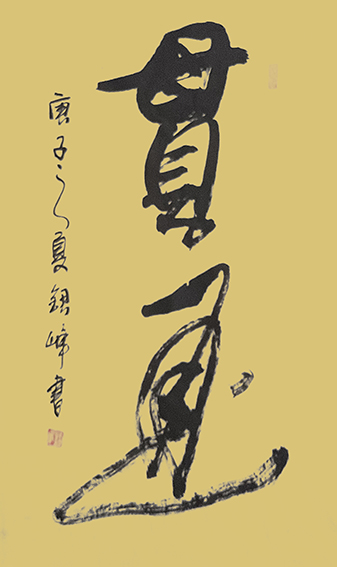 貫通
庚子之夏峰書